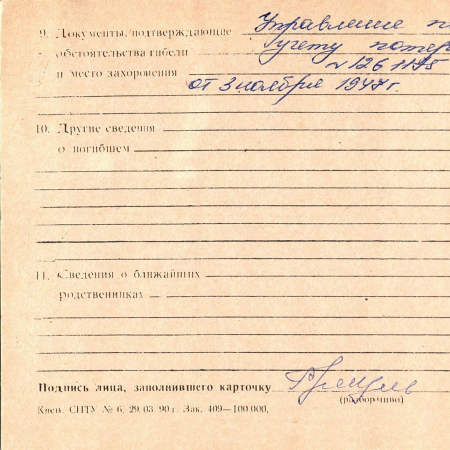 9. Документы, подтверждающие Управление п
обстоятельства гибели учету потер
и место захоронения №126 1175
от 3 ноября 1947 г.
10. Другие сведения
о погибшем
11. Сведения о ближайших
родственниках
Подпись лица, заполнившего карточку
(разборчиво)
Киев. СПТУ № 6, 29. 03. 90 г. Зак. 409—100 000.